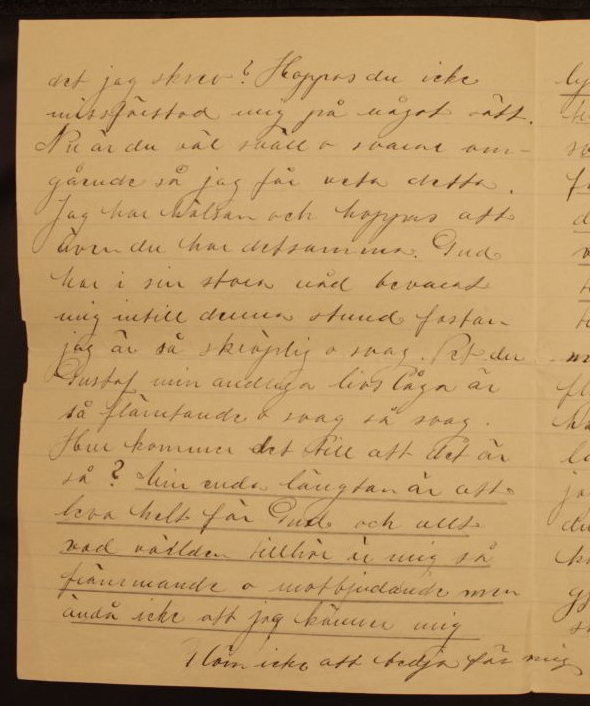 det jag skrev? Hoppas du icke
missförstod mig på något sätt.
Nu är du väl snäll o svarar om-
gående så jag får veta detta.
Jag har hälsan och hoppas att
även du har detsamma. Gud
har i sin stora nåd bevarat
mig intill denna stund fastän
jag är så skröplig o svag. Vet du
Gustaf min andliga livs låga är
så flämtande o svag så svag.
Hur kommer det till att det är
så? Min enda längtan är att
leva helt för Gud och allt
vad världen tillhör är mig så
främmande o motbjudande men
ändå icke att jag känner mig
Glöm icke att bedja för mig